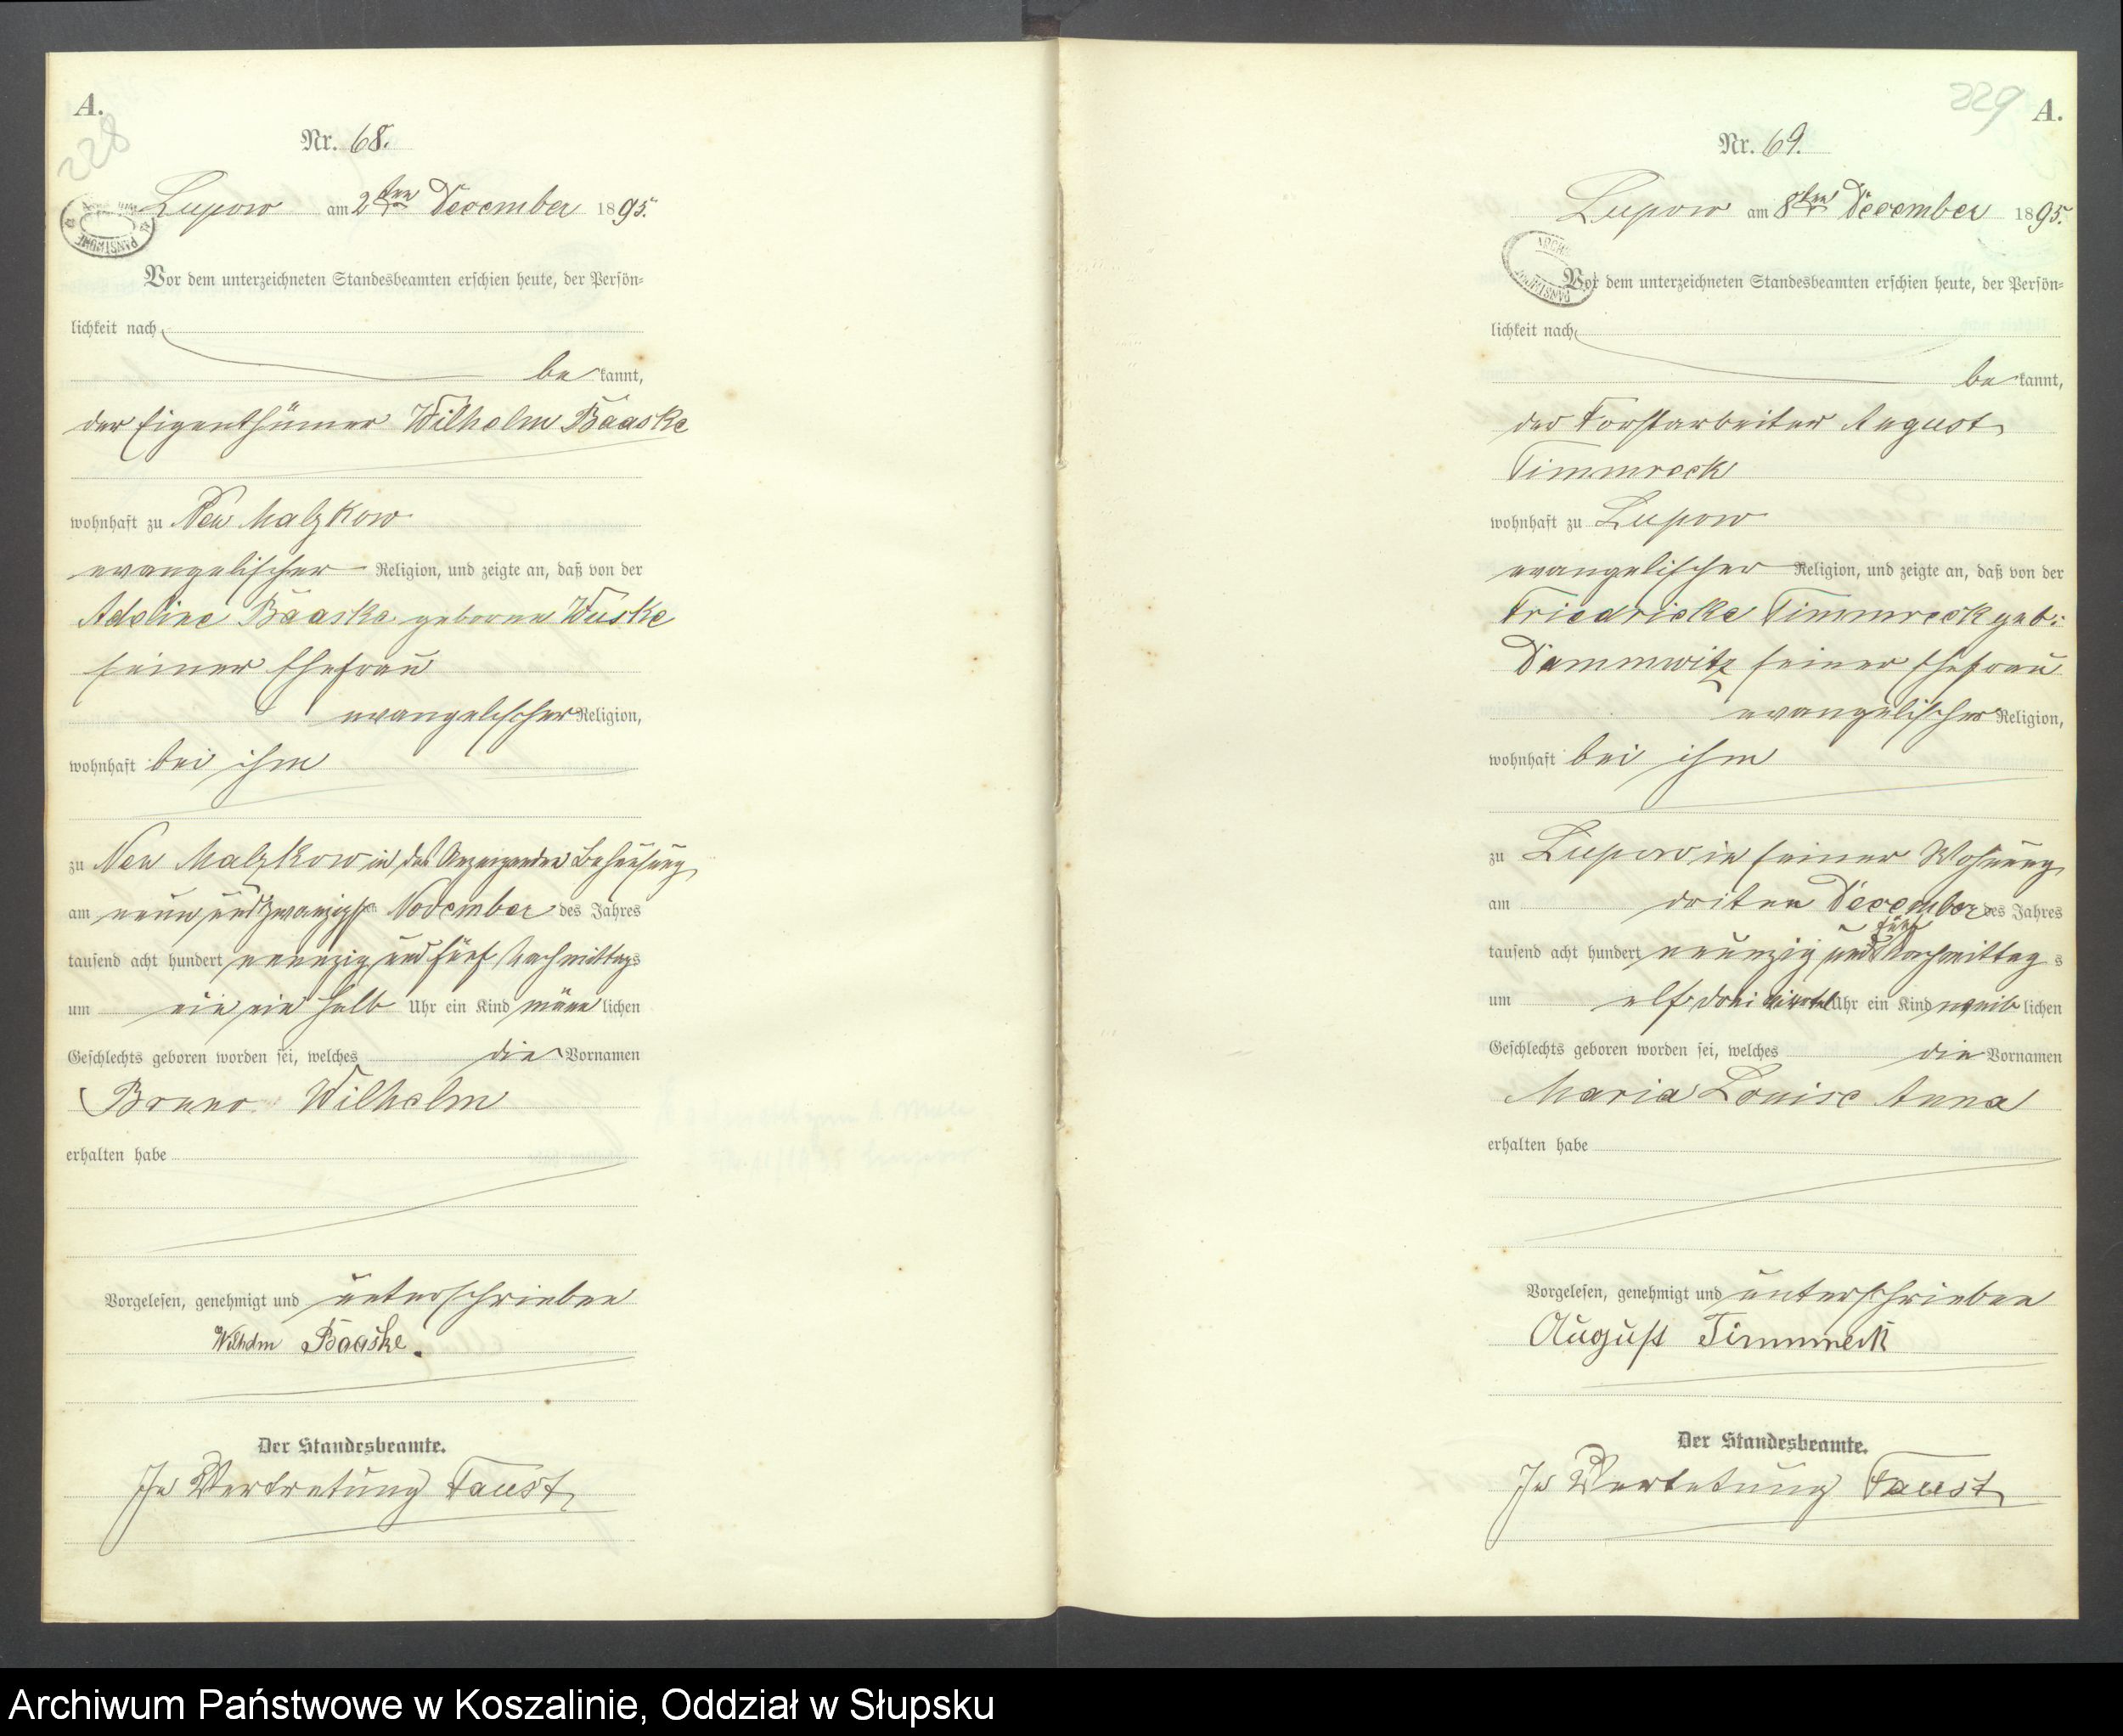 A.
228
Nr. 68.
Lupow am 2ten December 1895.
Vor dem unterzeichneten Standesbeamten erschien heute, der Persön-
lichkeit nach
be kannt,
der Eigenthümer Wilhelm Baaske
wohnhaft zu Neu Malzkow
evangelischer Religion, und zeigte an, daß von der
Adeline Baaske geborne Wuske
seiner Ehefrau
evangelischer Religion,
wohnhaft bei ihm
zu Neu Malzkow in des Anzeigenden Behausung
am neun und zwanzigsten November des Jahres
tausend acht hundert neunzig und fünf Nachmittags
um ein ein halb Uhr ein Kind männ lichen
Geschlechts geboren worden sei, welches die Vornamen
Bruno Wilhelm
erhalten habe
Vorgelesen, genehmigt und unterschrieben
Wilhelm Baaske.
Der Standesbeamte.
In Vertretung Faust
229
A.
Nr. 69.
Lupow am 8ten December 1895.
Vor dem unterzeichneten Standesbeamten erschien heute, der Persön-
lichkeit nach
be kannt,
der Forstarbeiter August
Timmreck
wohnhaft zu Lupow
evangelischer Religion, und zeigte an, daß von der
Friedricke Timmreck geb:
Dammwitz seiner Ehefrau
evangelischer Religion,
wohnhaft bei ihm
zu Lupow in seiner Wohnung
am driten December des Jahres
tausend acht hundert neunzig und fünf Nachmittag s
um elf drei viertel Uhr ein Kind weib lichen
Geschlechts geboren worden sei, welches die Vornamen
Maria Louise Anna
erhalten habe
Vorgelesen, genehmigt und unterschrieben
August Timmreck
Der Standesbeamte.
In Vertetung Faust
Archiwum Państwowe w Koszalinie, Oddział w Słupsku